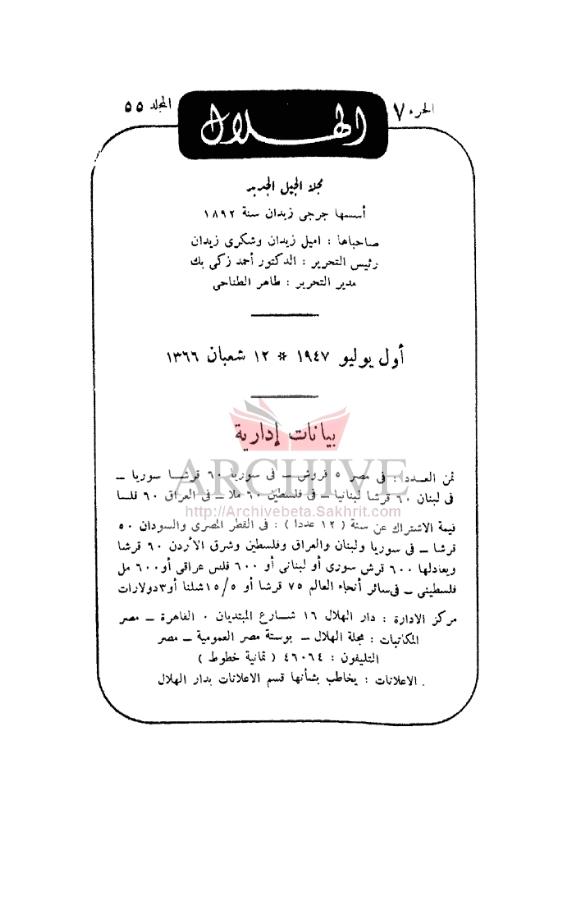 الجزء ٧
المجلد ٥٥
الهلال
مجلة الجيل الجديد
أسسها جرجى زيدان سنة ١٨٩٢
صاحباها : اميل زيدان وشكرى زيدان
رئيس التحرير : الدكتور أحمد زكى بك
مدير التحرير : طاهر الطناحى
أول يوليو ١٩٤٧ * ١٢ شعبان ١٣٦٦
بيانات إدارية
ARCHIVE
http://Archivebeta.Sakhrit.com
ثمن العدد : فى مصر ٥ قروش ــ فى سوريا ٦٠ قرشا سوريا ــ
فى لبنان ٦٠ قرشا لبنانيا ــ فى فلسطين ٦٠ ملا ــ فى العراق ٦٠ فلسا
قيمة الاشتراك عن سنة ( ١٢ عددا ) : فى القطر المصرى والسودان ٥٠
قرشا ــ فى سوريا ولبنان والعراق وفلسطين وشرق الأردن ٦٠ قرشا
ويعادلها ٦٠٠ قرش سورى أو لبنانى أو ٦٠٠ فلس عراقى أو ٦٠٠ مل
فلسطينى ــ فى سائر أنحاء العالم ٧٥ قرشا أو ١٥/٥ شلنا أو ٣ دولارات
مركز الادارة : دار الهلال ١٦ شارع المبتديان ٠ القاهرة ــ مصر
المكاتبات : مجلة الهلال ــ بوستة مصر العمومية ــ مصر
التليفون : ٤٦٠٦٤ ( ثمانية خطوط )
الاعلانات : يخاطب بشأنها قسم الاعلانات بدار الهلال .